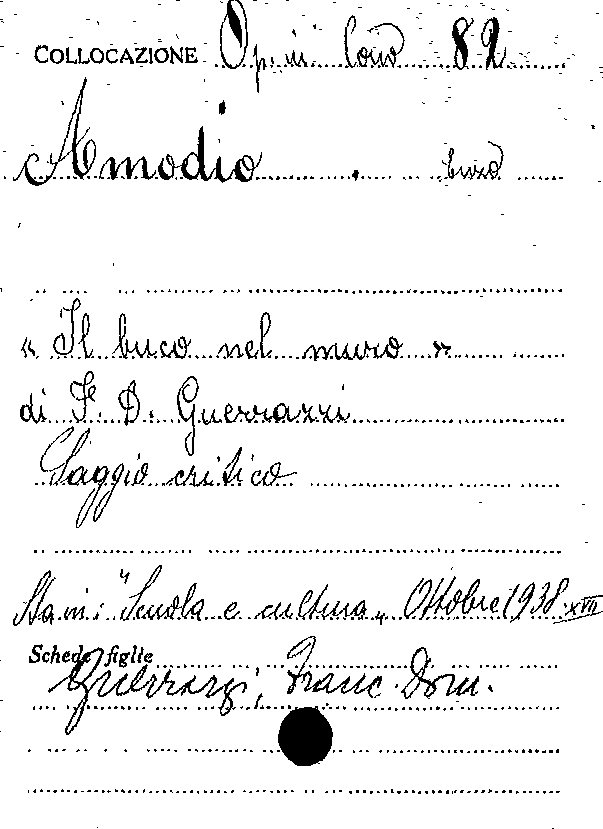 COLLOCAZIONE Op. in Cons 82
Amodio
« Il buco nel muro »
di F. D. Guerrazzi
Saggio critico
Sta in: "Scuola e cultura„ Ottobre 1938 XVII
Schede figlie
Guerrazzi, Franc. Dom.